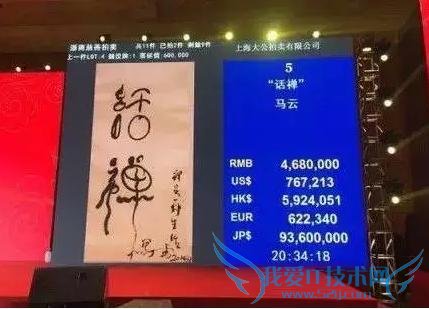 浙商慈善拍卖 共11件 已拍2件 剩馀9件
上一件LOT.4 落槌价:600,000
上海大公拍卖有限公司
5
“话禅”
马云
RMB 4,680,000
US$ 767,213
HK$ 5,924,051
EUR 622,340
JP¥ 93,600,000
20:34:18
話
禪
我爱IT技术网
www.52ij.com